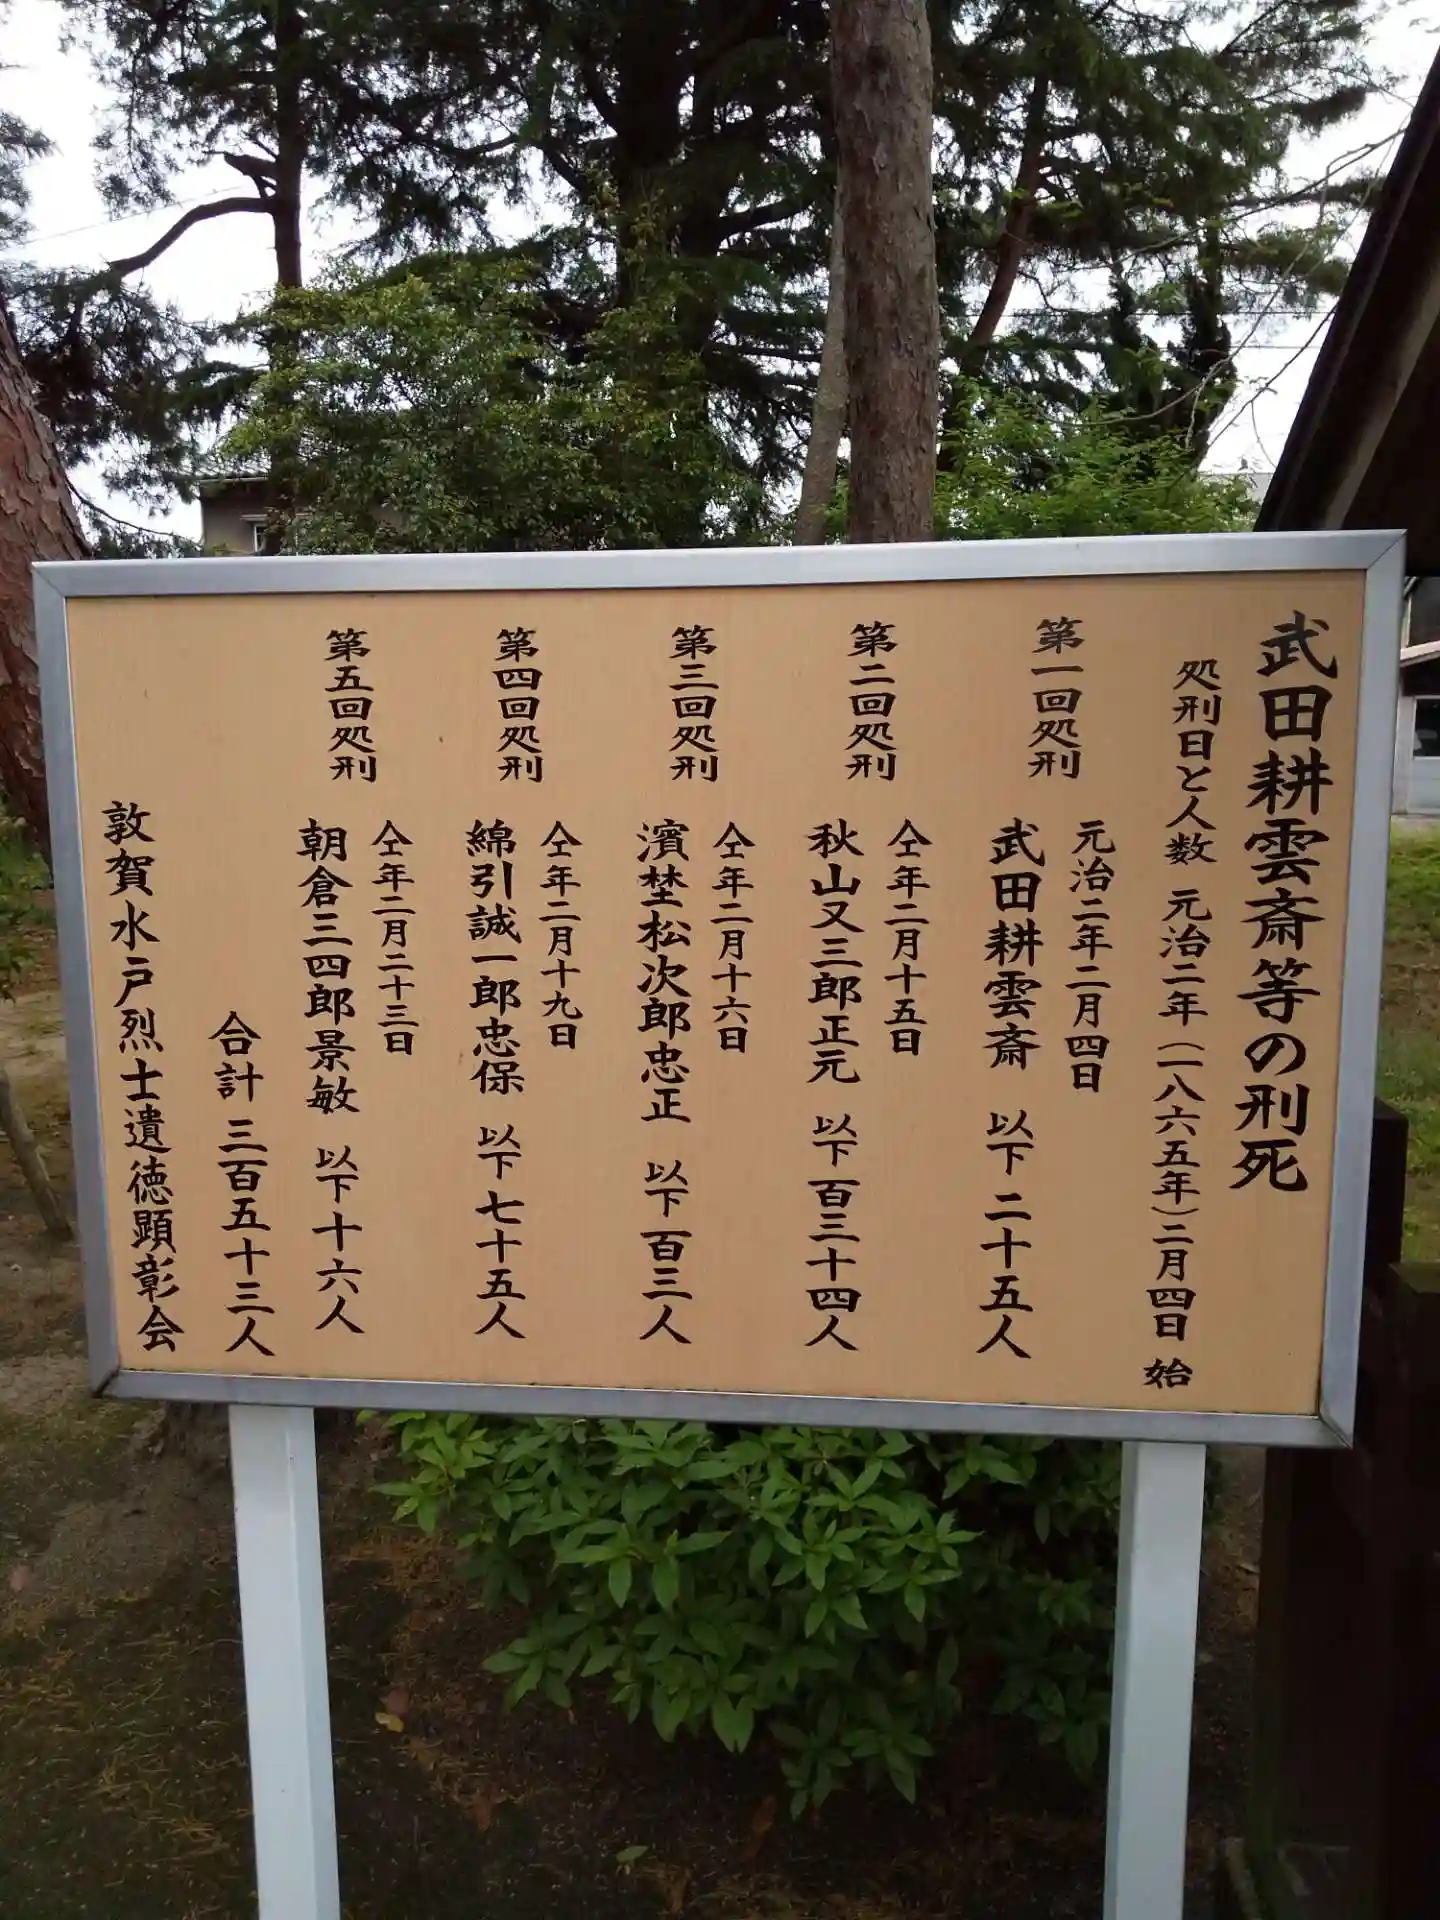 武田耕雲斎等の刑死
処刑日と人数 元治二年（一八六五年）二月四日 始
第一回処刑
元治二年二月四日
武田耕雲斎 以下 二十五人
第二回処刑
仝年二月十五日
秋山又三郎正元 以下 百三十四人
第三回処刑
仝年二月十六日
濱埜松次郎忠正 以下 百三人
第四回処刑
仝年二月十九日
綿引誠一郎忠保 以下 七十五人
第五回処刑
仝年二月二十三日
朝倉三四郎景敏 以下 十六人
合計 三百五十三人
敦賀水戸烈士遺徳顕彰会